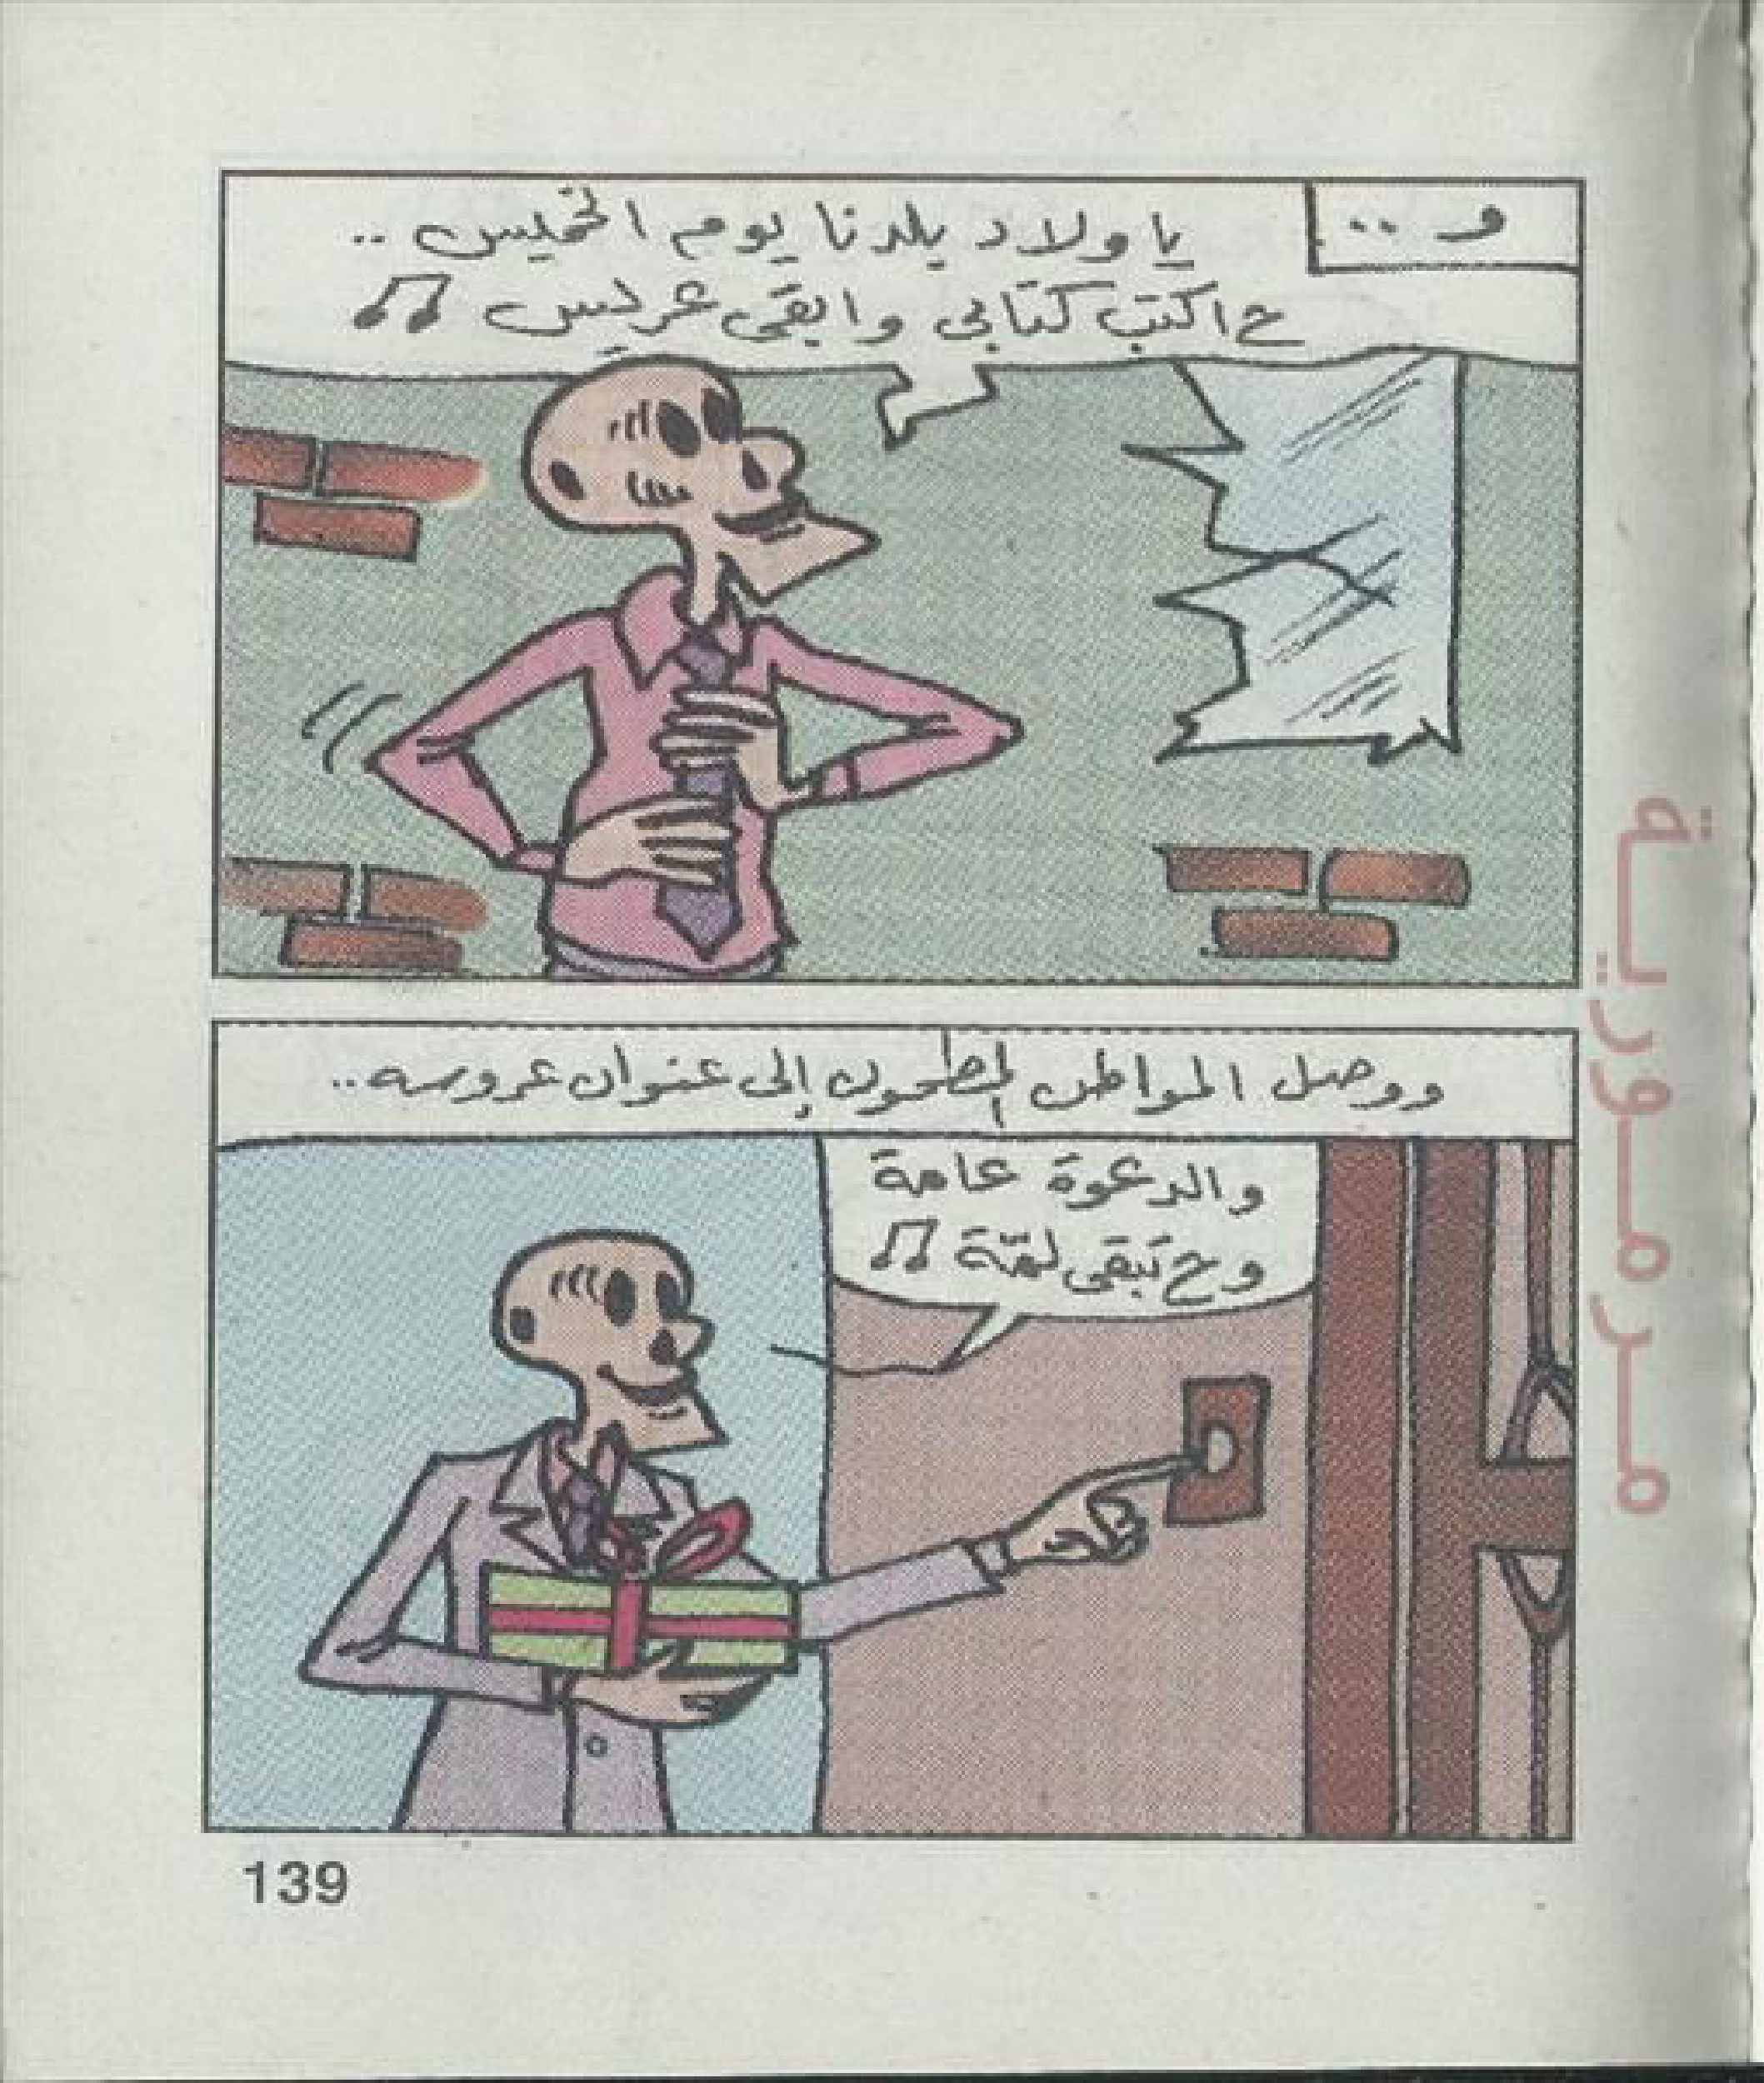 و ..
يا ولاد بلدنا يوم الخميس ..
ح اكتب كتابى وابقى عريس
ووصل المواطن المطحون إلى عنوان عروسه ..
والدعوة عامة
وح تبقى لمّة
139
مرمورية